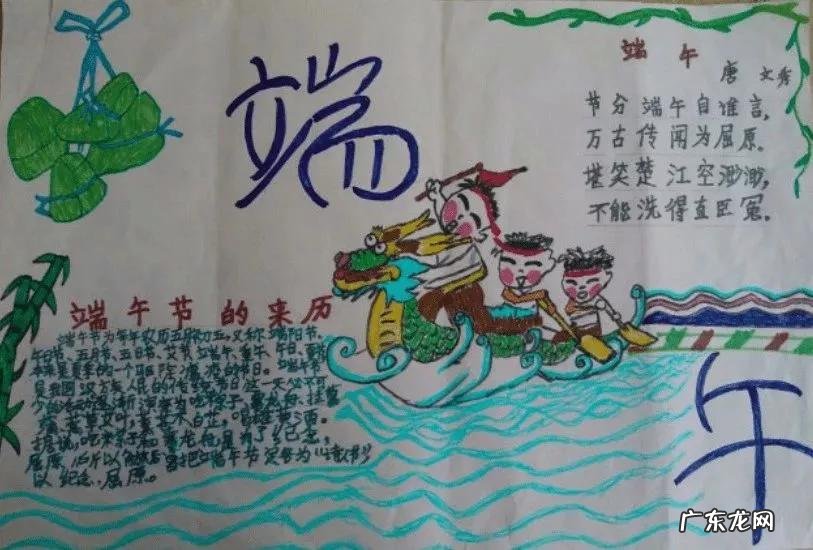 端
端 午
唐 文秀
节分端午自谁言,
万古传闻为屈原。
堪笑楚江空渺渺,
不能洗得直臣冤。
端午节的来历
端午节为每年农历五月初五,又称端阳节、
午日节、五月节、五日节、艾节、端午、重午、午日、夏节
本来是夏季的一个驱除瘟疫的节日。端午节
是我国汉族人民的传统节日这一天必不可
少的活动逐渐演变为吃粽子、赛龙舟、挂菖
蒲、蒿草艾叶,薰苍术白芷,喝雄黄酒。
据说,吃粽子和赛龙舟是为了纪念
屈原,所以
把端午节定名为“诗人节”
以纪念屈原。
午
广东龙网